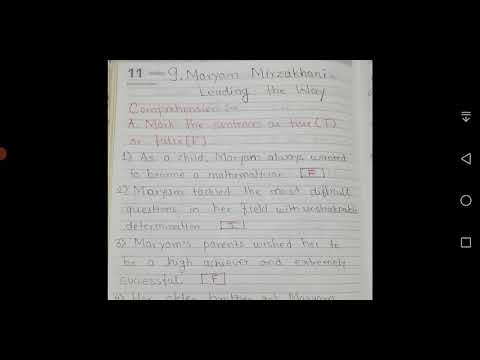 11 9. Maryam Mirzakhani -
Leading the Way
Comprehension :-
A. Mark the sentences as true (T)
or false (F)
1) As a child, Maryam always wanted
to become a mathematician F
2) Maryam tackled the most difficult
questions in her field with unshakable
determination T
3) Maryam's parents wished her to
be a high achiever and extremely
successful. F
4) Her older brother got Maryam